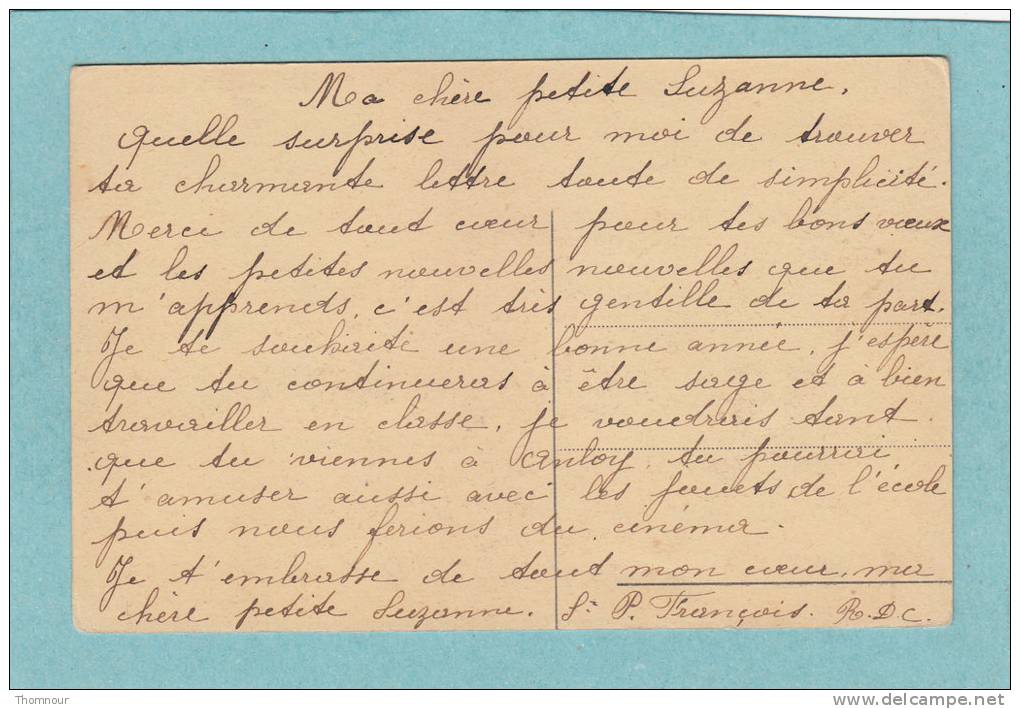 Ma chère petite Suzanne,
Quelle surprise pour moi de trouver
ta charmante lettre toute de simplicité.
Merci de tout cœur pour tes bons vœux
et les petites nouvelles nouvelles que tu
m'apprends, c'est très gentille de ta part.
Je te souhaite une bonne année, j'espère
que tu continueras à être sage et à bien
travailler en classe, je voudrais tant
que tu viennes à Anloy, tu pourrai
t'amuser aussi avec les jouets de l'école
puis nous ferions du cinéma.
Je t'embrasse de tout mon cœur, ma
chère petite Suzanne. Sr P. François. R.D.C.
Thomnour
www.delcampe.net